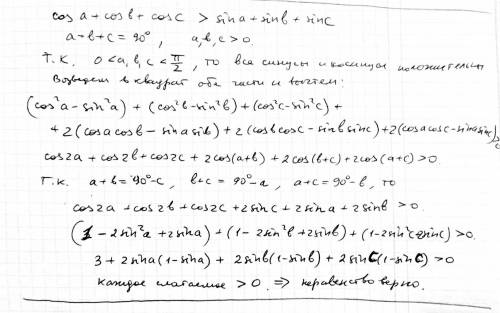 cos a + cos b + cos c > sin a + sin b + sin c
a + b + c = 90°, a, b, c > 0.
Т.к. 0 < a, b, c < π/2, то все синусы и косинусы положительны
Возведем в квадрат обе части и вычтем:
(cos²a − sin²a) + (cos²b − sin²b) + (cos²c − sin²c) +
+ 2(cos a cos b − sin a sin b) + 2(cos b cos c − sin b sin c) + 2(cos a cos c − sin a sin c) > 0
cos 2a + cos 2b + cos 2c + 2cos(a+b) + 2cos(b+c) + 2cos(a+c) > 0
Т.к. a+b = 90°−c, b+c = 90°−a, a+c = 90°−b, то
cos 2a + cos 2b + cos 2c + 2sin c + 2sin a + 2sin b > 0.
(1 − 2sin²a + 2sin a) + (1 − 2sin²b + 2sin b) + (1 − 2sin²c + 2sin c) > 0.
3 + 2sin a(1 − sin a) + 2sin b(1 − sin b) + 2sin c(1 − sin c) > 0
каждое слагаемое > 0. ⇒ неравенство верно.